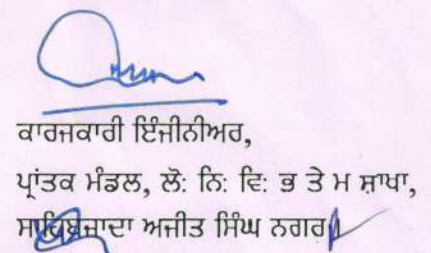 ਕਾਰਜਕਾਰੀ ਇੰਜੀਨੀਅਰ,
ਪ੍ਰਾਂਤਕ ਮੰਡਲ, ਲੋ: ਨਿ: ਵਿ: ਭ ਤੇ ਮ ਸ਼ਾਖਾ,
ਸਾਹਿਬਜ਼ਾਦਾ ਅਜੀਤ ਸਿੰਘ ਨਗਰ।